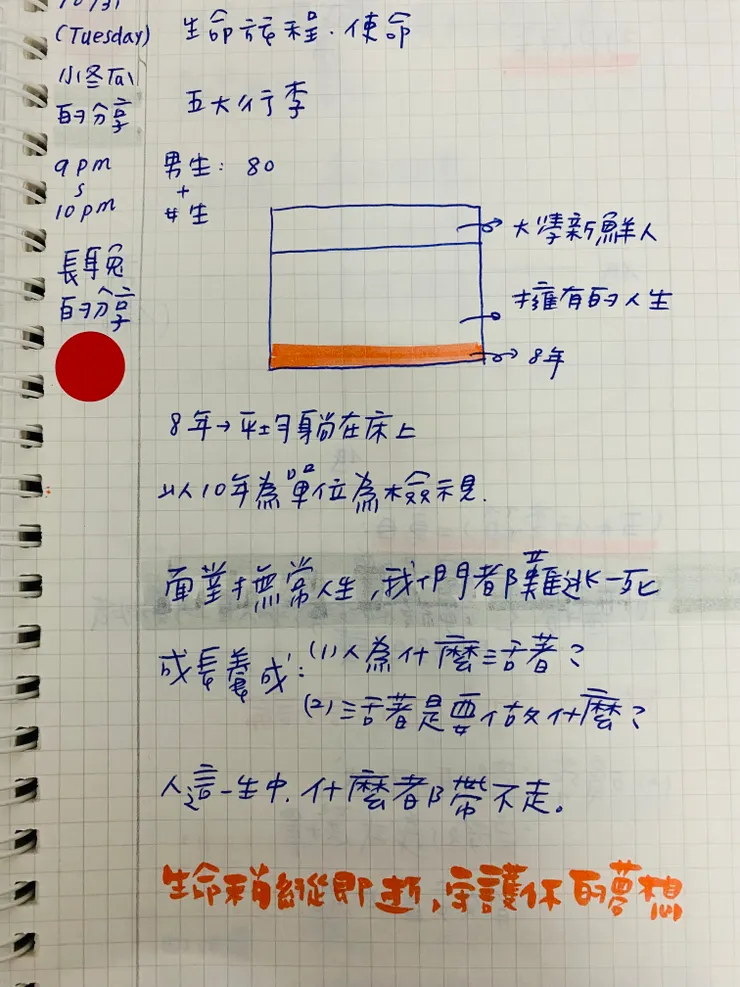 10/31
(Tuesday)
小冬瓜
的分享
9pm
10pm
長耳兔
的分享
生命旅程.使命
五大行李
男生: 80
+
女生
大學新鮮人
擁有的人生
8年
8年→平均躺在床上
以10年為單位為檢視.
面對無常人生,我們都難逃一死
成長養成:(1)人為什麼活著?
(2)活著是要做什麼?
人這一生中.什麼都帶不走。
生命稍縱即逝,守護你的夢想